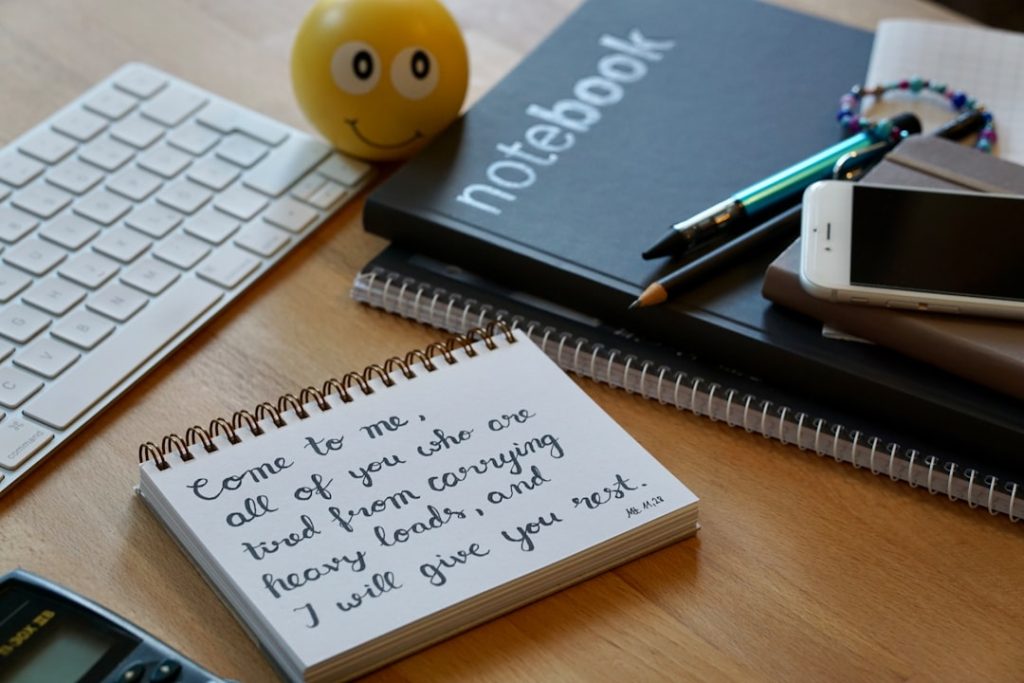 notebook
Come to me,
all of you who are
tired from carrying
heavy loads, and
I will give you rest.
Mt. 11,28
command
TI-30X IIB